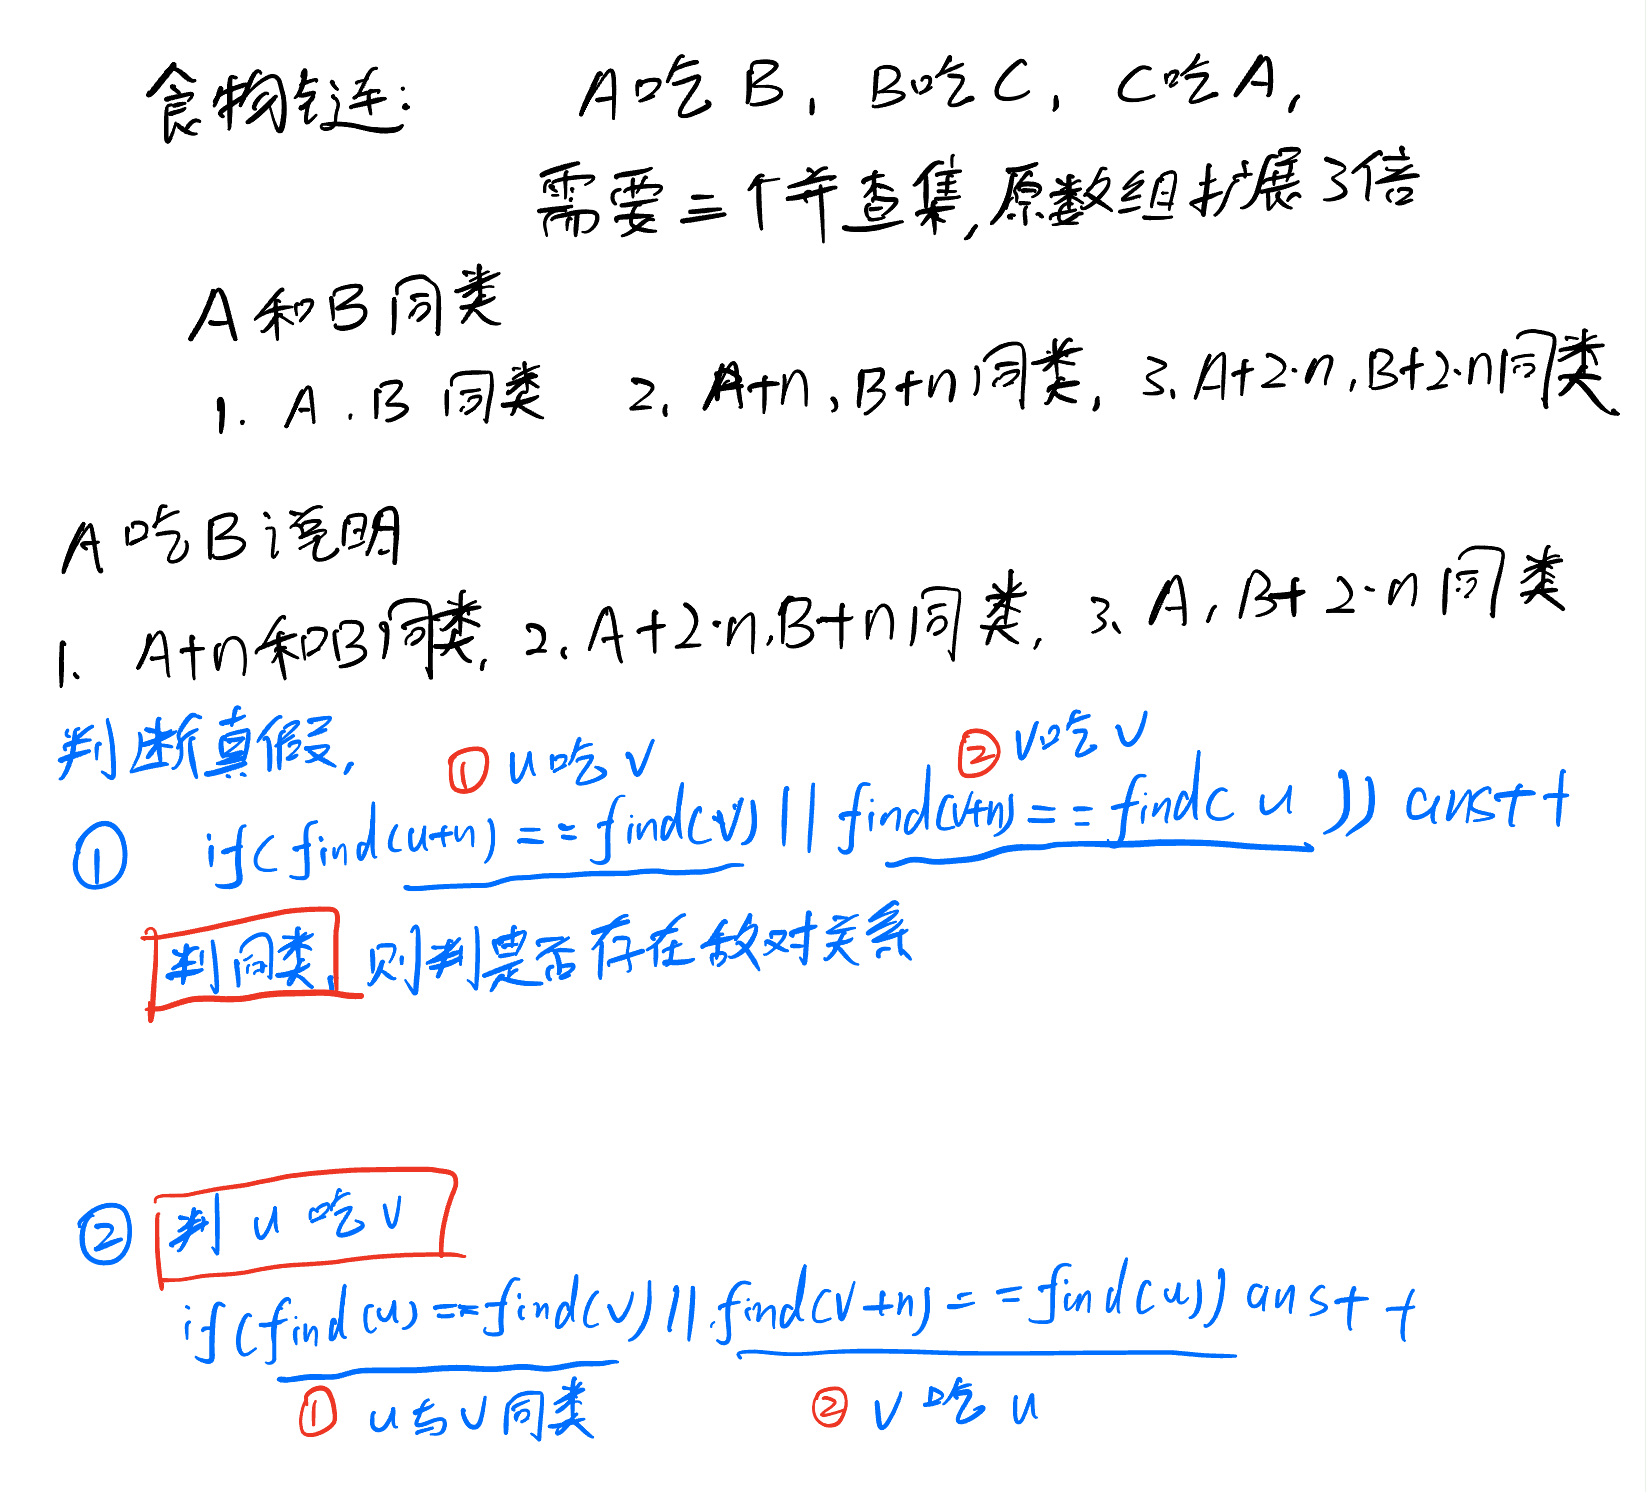 食物链: A吃B, B吃C, C吃A,
需要三个并查集,原数组扩展3倍
A和B同类
1. A.B 同类 2. A+n,B+n同类, 3. A+2·n,B+2·n同类
A吃B说明
1. A+n和B同类, 2. A+2·n,B+n同类, 3. A,B+2·n同类
判断真假, ① u吃v ② v吃v
① if(find(u+n)==find(v)||find(v+n)==find(u)) ans++
判同类, 则判是否存在敌对关系
② 判 u 吃 v
if(find(u)==find(v)||find(v+n)==find(u)) ans++
① u与v同类 ② v吃u